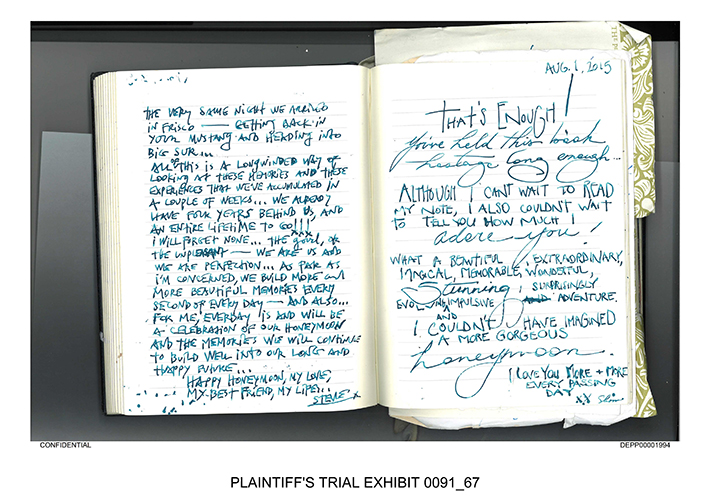 THE VERY SAME NIGHT WE ARRIVED
IN FRISCO — GETTING BACK IN
YOUR MUSTANG AND HEADING INTO
BIG SUR...
ALL OF THIS IS A LONGWINDED WAY OF
LOOKING AT THESE MEMORIES AND THESE
EXPERIENCES THAT WE'VE ACCUMULATED IN
A COUPLE OF WEEKS... WE ALREADY
HAVE FOUR YEARS BEHIND US, AND
AN ENTIRE LIFETIME TO GO!!!
XXX
I WILL FORGET NONE... THE GOOD, OR
THE UNPLEASANT — WE ARE US AND
WE ARE PERFECTION... AS FAR AS
I'M CONCERNED, WE BUILD MORE AND
MORE BEAUTIFUL MEMORIES EVERY
SECOND OF EVERY DAY — AND ALSO...
FOR ME, EVERYDAY IS AND WILL BE
A CELEBRATION OF OUR HONEYMOON
AND THE MEMORIES WE WILL CONTINUE
TO BUILD WELL INTO OUR LONG AND
HAPPY FUTURE...
HAPPY HONEYMOON, MY LOVE,
MY BEST FRIEND, MY LIFE...
STEVE X
AUG. 1, 2015
THAT'S ENOUGH!
You've held this book
hostage long enough...
ALTHOUGH I CAN'T WAIT TO READ
MY NOTE, I ALSO COULDN'T WAIT
TO TELL YOU HOW MUCH I
adore you!
WHAT A BEAUTIFUL, EXTRAORDINARY,
MAGICAL, MEMORABLE, WONDERFUL,
Stunning, SURPRISINGLY
IMPULSIVE ADVENTURE.
AND
I COULDN'T HAVE IMAGINED
A MORE GORGEOUS
honeymoon.
I LOVE YOU MORE + MORE
EVERY PASSING
DAY
XX Slim
CONFIDENTIAL
DEPP00001994
PLAINTIFF'S TRIAL EXHIBIT 0091_67